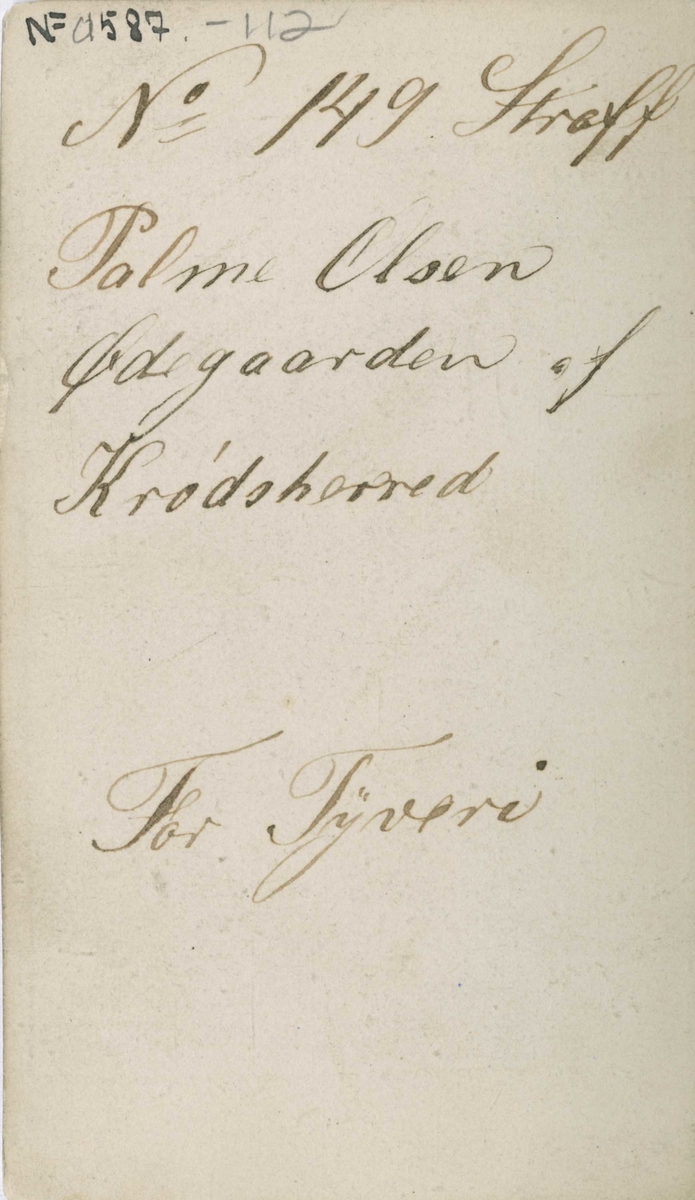 No a587. -112
No 149 Straff
Palme Olsen
Ødegaarden af
Krødsherred
For Tÿveri